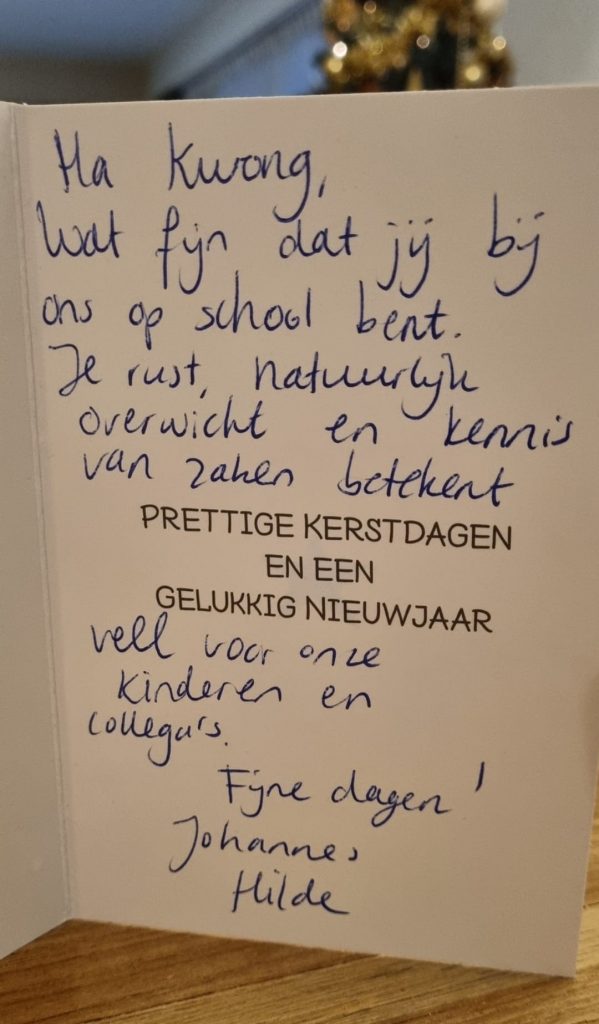 Ha Kwong,
Wat fijn dat jij bij
ons op school bent.
Je rust, natuurlijk
overwicht en kennis
van zaken betekent
PRETTIGE KERSTDAGEN
EN EEN
GELUKKIG NIEUWJAAR
veel voor onze
kinderen en
collega's.
Fijne dagen!
Johannes
Hilde